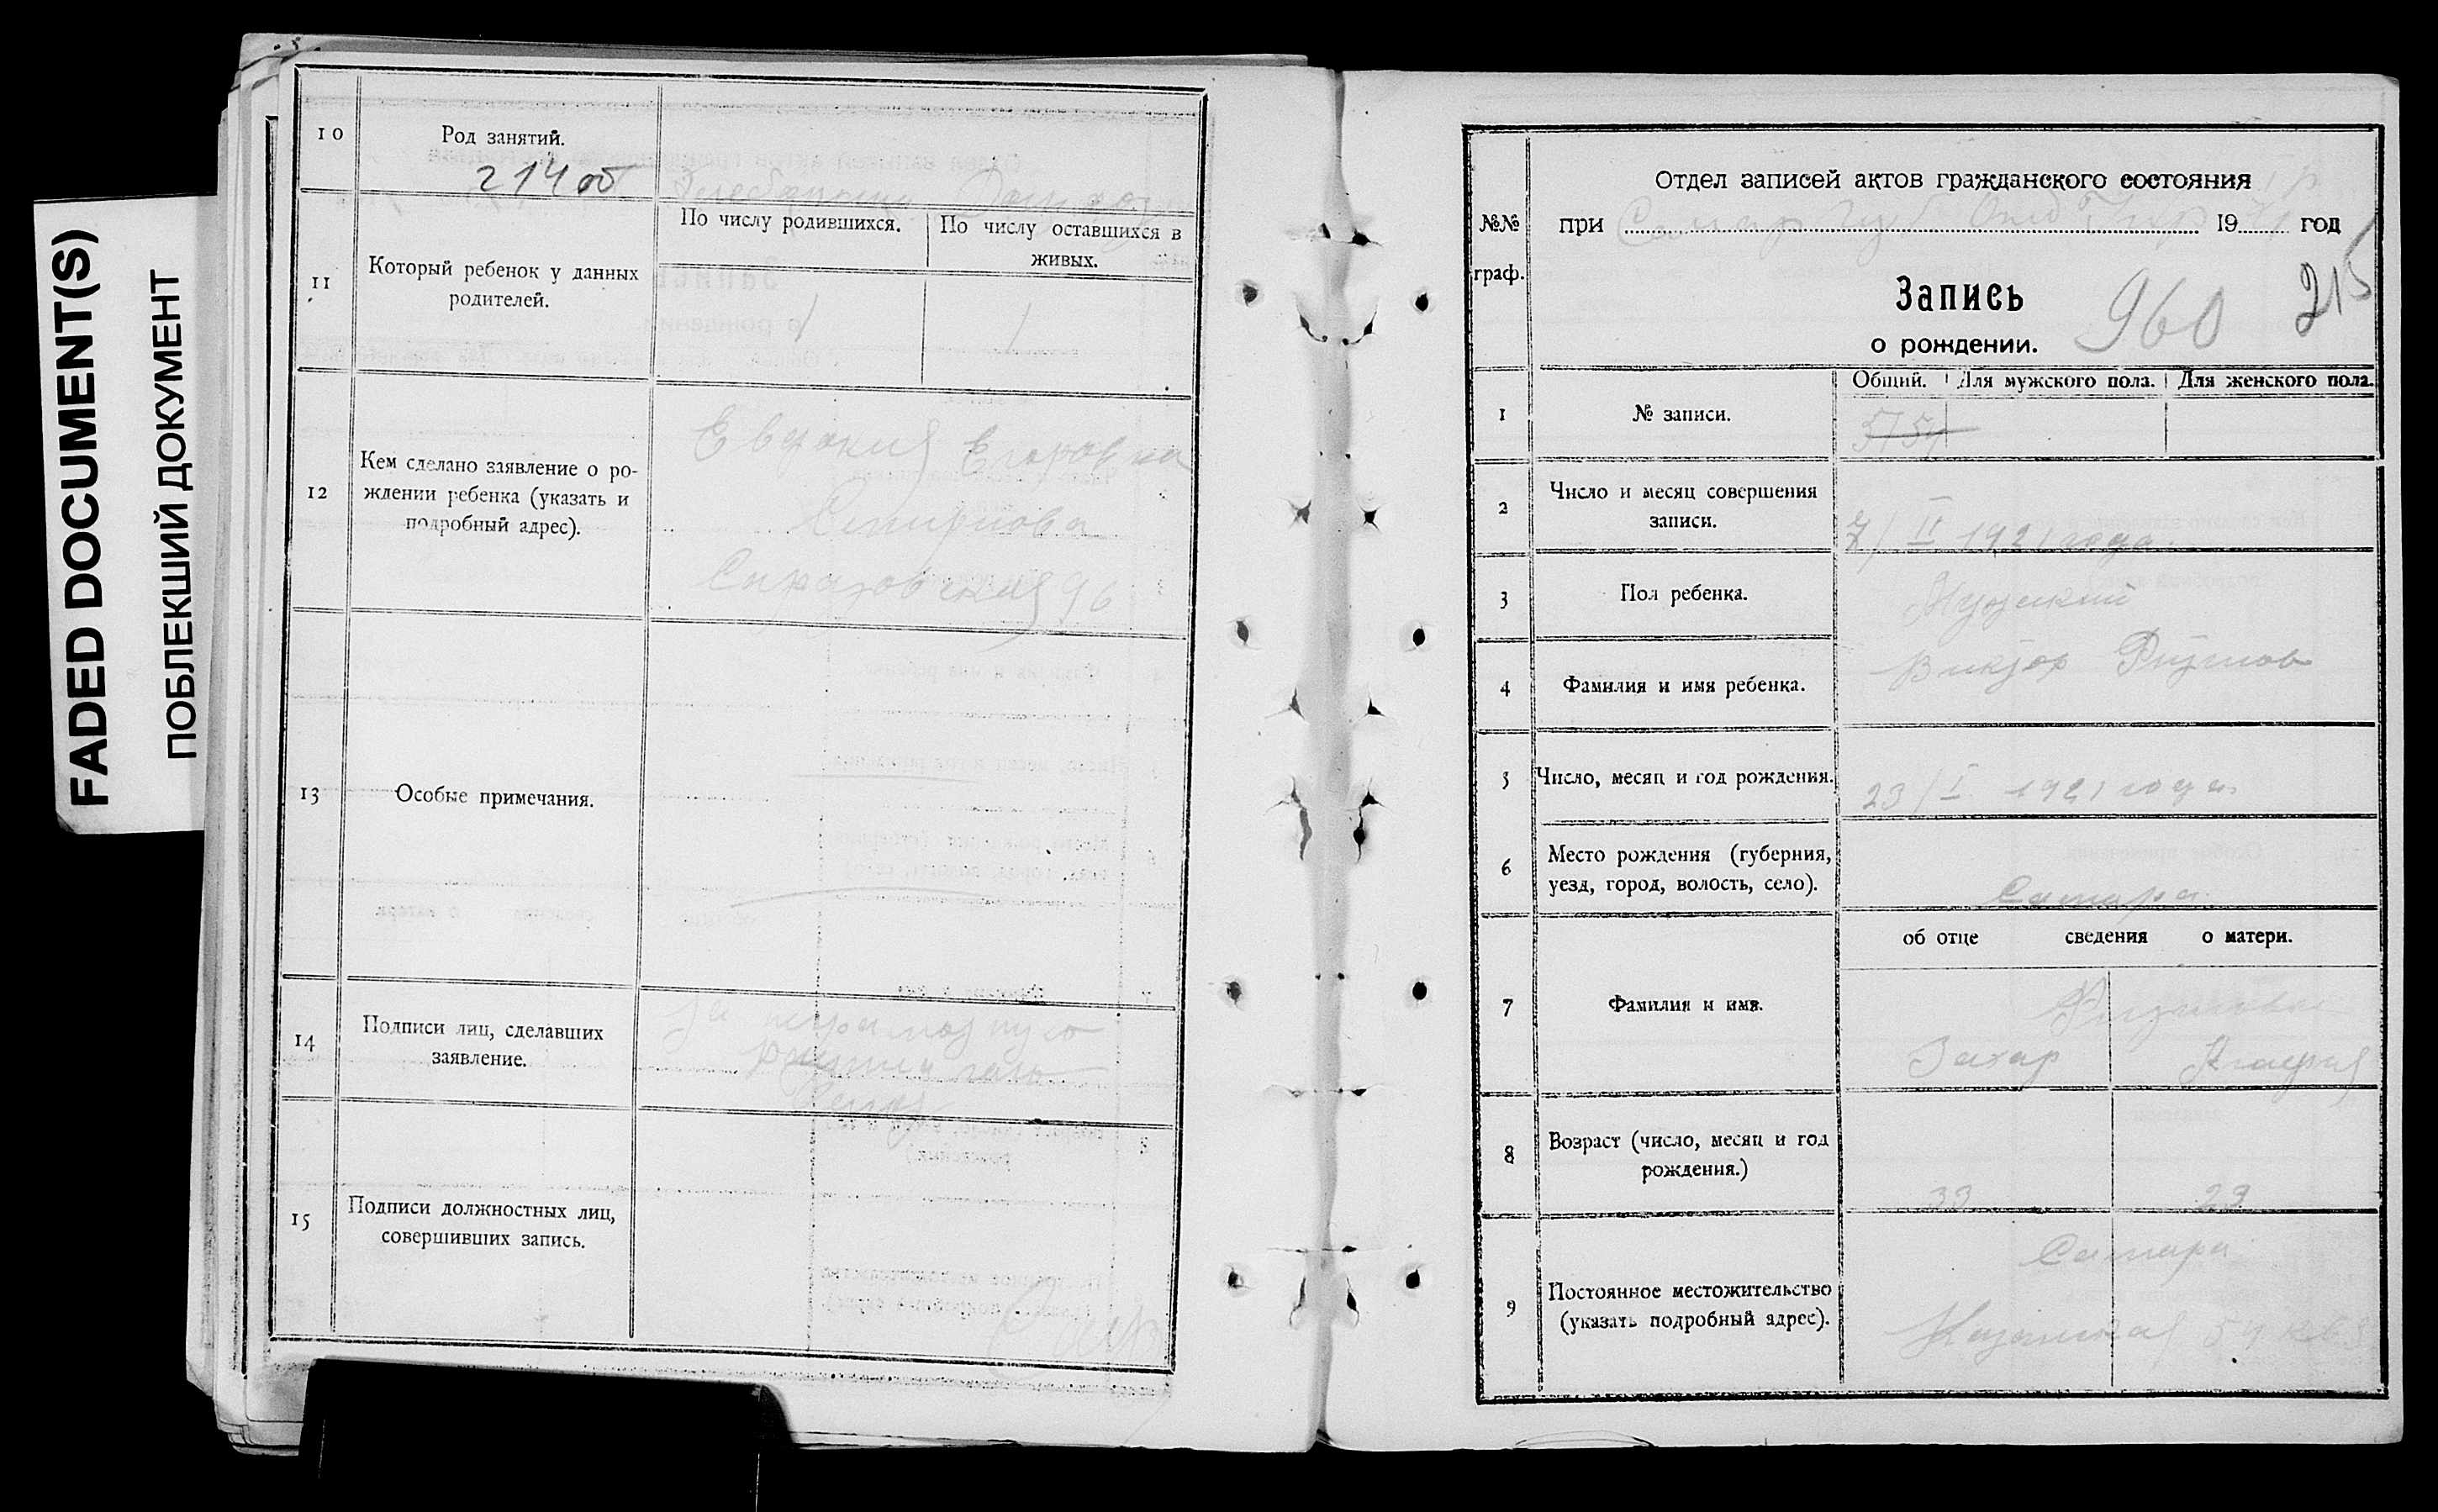 FADED DOCUMENT(S)
ПОБЛЕКШИЙ ДОКУМЕНТ
10
Род занятий.
214 об
11
Который ребенок у данных
родителей.
По числу родившихся.
По числу оставшихся в
живых.
1
1
12
Кем сделано заявление о ро-
ждении ребенка (указать и
подробный адрес).
Евдокия Егоровна
Смирнова
96
13
Особые примечания.
14
Подписи лиц, сделавших
заявление.
за неграмотную
15
Подписи должностных лиц,
совершивших запись.
№№
граф.
Отдел записей актов гражданского состояния
при Самар Губ Отд Упр 19 21 год
Запись
о рождении.
960
215
1
№ записи.
Общий.
Для мужского пола.
Для женского пола.
2
Число и месяц совершения
записи.
7/II 1921 года.
3
Пол ребенка.
Мужской
4
Фамилия и имя ребенка.
Виктор
5
Число, месяц и год рождения.
23/I 1921 года.
6
Место рождения (губерния,
уезд, город, волость, село).
Самара
7
Фамилия и имя.
об отце сведения о матери.
Захар
8
Возраст (число, месяц и год
рождения.)
33
23
9
Постоянное местожительство
(указать подробный адрес).
Самара